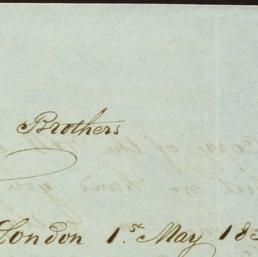 Brothers
London 1st May 183